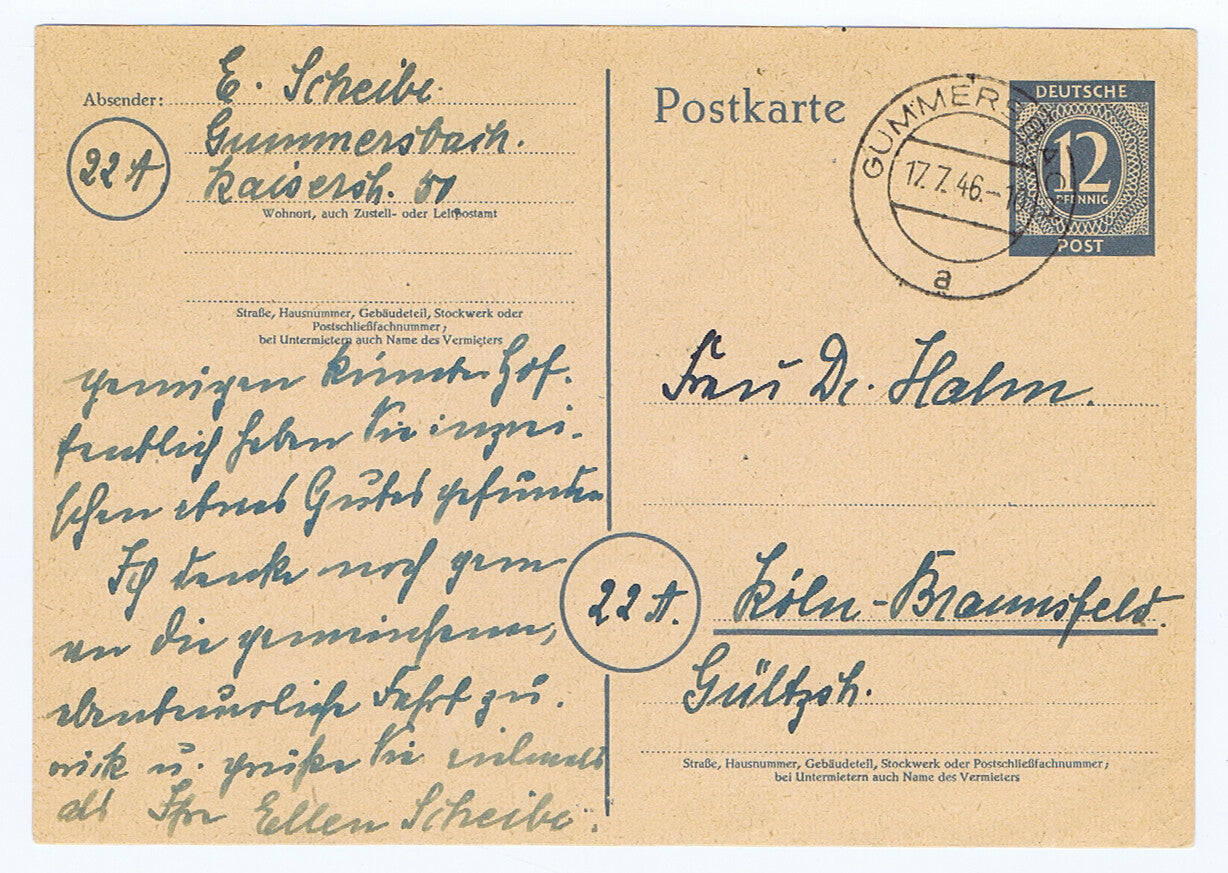 Absender: E. Scheibe.
Gummersbach.
22 A
Kaiserstr. 51
Wohnort, auch Zustell- oder Leitpostamt
Straße, Hausnummer, Gebäudeteil, Stockwerk oder
Postschließfachnummer;
bei Untermietern auch Name des Vermieters
Hof-
fentlich haben Sie inzwi-
schen etwas Gutes gefunden
Ich denke noch gern
an die gemeinsame,
abenteuerliche Fahrt zu-
rück u. grüße Sie vielmals
als Ihre Ellen Scheibe.
Postkarte
GUMMERSBACH
17.7.46.-
a
DEUTSCHE
12
PFENNIG
POST
Frau Dr. Halm.
22 A.
Köln-Braunsfeld.
Gültzstr.
Straße, Hausnummer, Gebäudeteil, Stockwerk oder Postschließfachnummer;
bei Untermietern auch Name des Vermieters